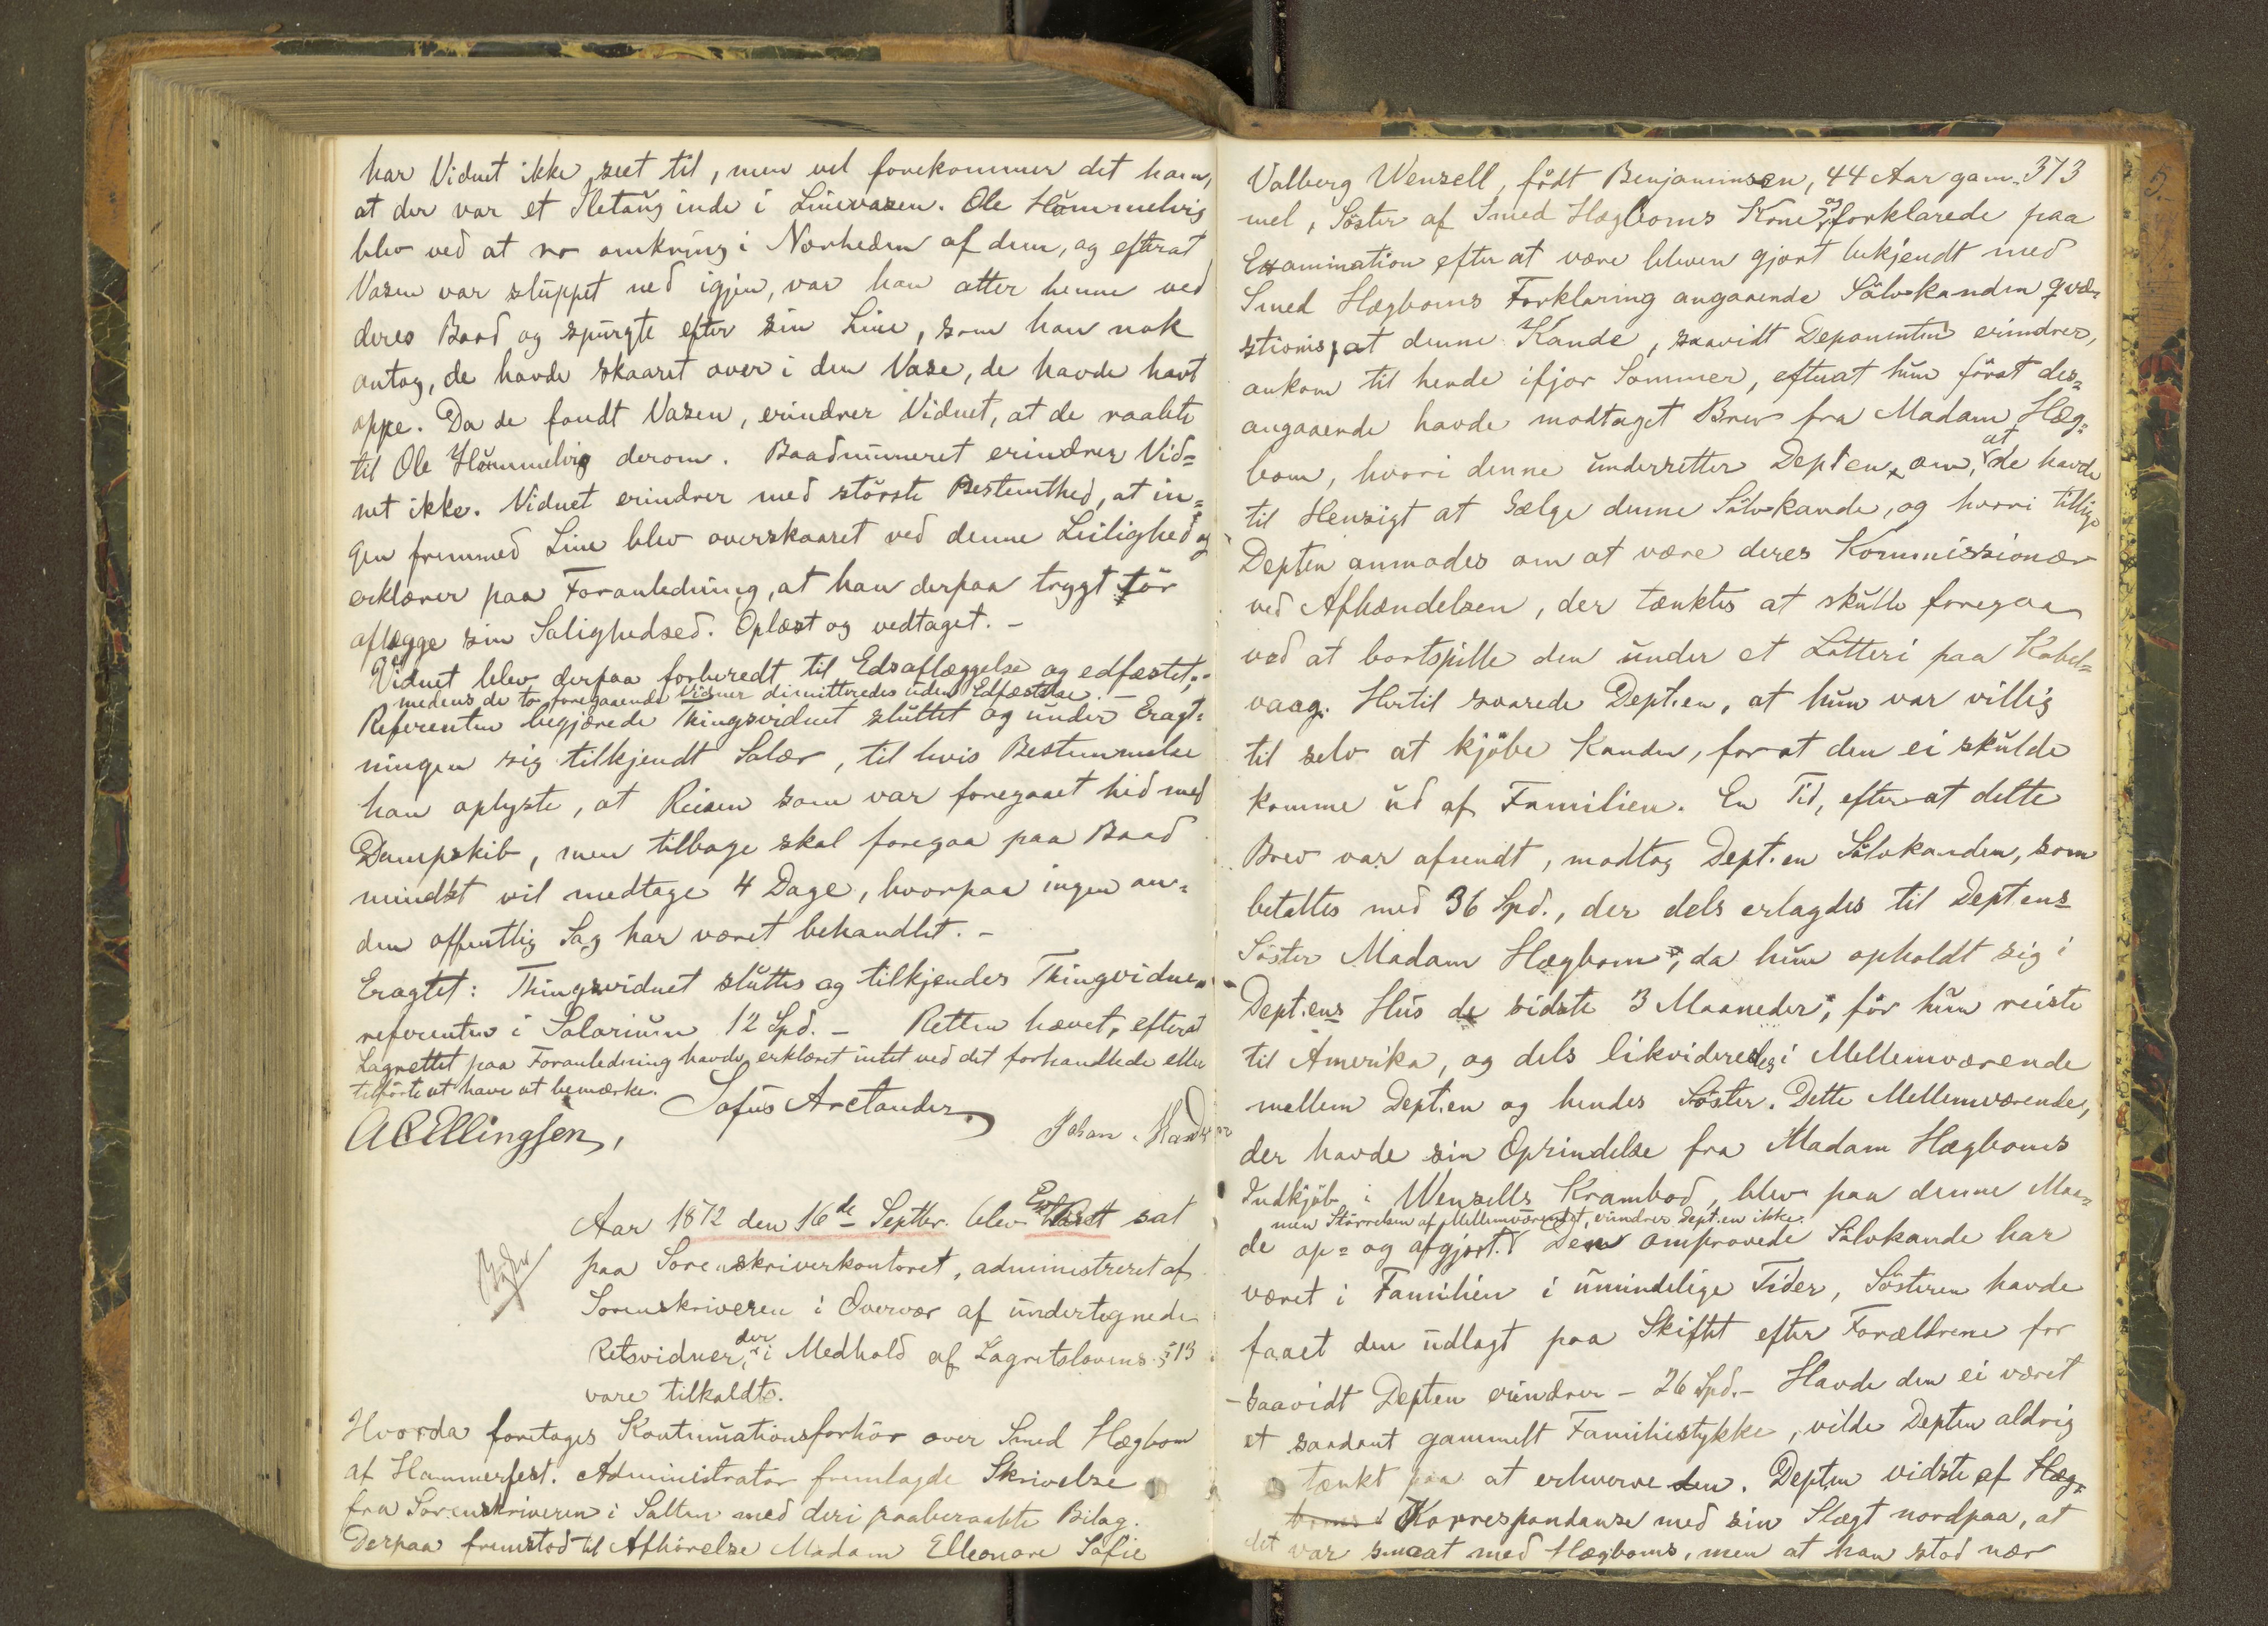 har Vidnet ikke seet til, men vel forekommer det ham,
at der var et Iletaug inde i Linevasen. Ole Hummelvig
blev ved at ro omkring i Nærheden af dem, og efterat
Vasen var sluppet ned igjen, var han atter henne ved
deres Baad og spurgte efter sin Line, som han nok
antog, de havde skaaret over i den Vase, de havde havt
oppe. Da de fandt Vasen, erindrer Vidnet, at de raabte
til Ole Hummelvig derom. Baadnummeret erindrer Vid=
net ikke. Vidnet erindrer med største Bestemthed, at in=
gen fremmed Line blev overskaaret ved denne Leilighed og
erklærer paa Foranledning, at han derpaa trygt tør
aflægge sin Salighedsed. Oplæst og vedtaget. –
Vidnet blev derpaa forberedt til Edsaflæggelse og edfæstet,
medens de to foregaaende Vidner dimitteredes uden Edfæstelse. –
Referenten begjærede Thingsvidnet sluttet og under Eragt=
ningen sig tilkjendt Salær, til hvis Bestemmelse
han oplyste, at Reisen som var foregaaet hid med
Dampskib, men tilbage skal foregaa paa Baad
mindst vil medtage 4 Dage, hvorpaa ingen an=
den offentlig Sag har været behandlet. –
Eragtet: Thingsvidnet sluttes og tilkjendes Thingvidne
referenten i Salarium 12 Spd. – Retten hævet, efterat
Lagrettet paa Foranledning havde erklæret intet ved det forhandlede eller
tilførte at have at bemærke.
Sofus Arctander
A C Ellingsen,
Johan
Aar 1872 den 16de Septbr. blev Ext Ret sat
paa Sorenskriverkontoret, administreret af
Sorenskriveren i Overvær af undertegnede
Retsvidner, der i Medhold af Lagretslovens § 13
vare tilkaldte.
Hvorda foretages Kontinuationsforhör over Smed Hægbom
af Hammerfest. Administrator fremlagde Skrivelse
fra Sorenskriveren i Salten med deri paaberaabte Bilag.
Derpaa fremstod til Afhørelse Madam Elleonore Sofie
373
Valberg Wensell, födt Benjaminsen, 44 Aar gam=
mel, Söster af Smed Hægboms Kone og forklarede paa
Examination efter at være bleven gjort bekjendt med
Smed Hægboms Forklaring angaaende Sölvkanden qvæ=
stionis, at denne Kande, saavidt Deponenten erindrer,
ankom til hende ifjor Sommer, efterat hun först des=
angaaende havde modtaget Brev fra Madam Hæg=
bom, hvori denne underretter Depten om, at de havde
til Hensigt at sælge denne Sölvkande, og hvori tillige
Depten anmodes om at være deres Kommissionær
ved Afhændelsen, der tænktes at skulle foregaa
ved at bortspille den under et Lotteri paa Kabel=
vaag. Hertil svarede Dept.en, at hun var villig
til selv at kjöbe Kanden, forat den ei skulde
komme ud af Familien. En Tid, efterat dette
Brev var afsendt, modtog Dept.en Sölvkanden, som
betaltes med 36 Spd., der dels erlagdes til Deptens
Söster Madam Hægbom, da hun opholdt sig i
Dept.ens Hus de sidste 3 Maaneder, för hun reiste
til Amerika, og dels likvideredes i Mellemværende
mellem Dept.en og hendes Söster. Dette Mellemværende,
der havde sin Oprindelse fra Madam Hægboms
Indkjöb i Wensells Krambod, blev paa denne Maa=
men Störrelsen af Mellemværendet, erindrer Dept.en ikke.
de op= og afgjort. Den omprovede Sölvkande har
været i Familien i umindelige Tider, Sösteren havde
faaet den udlagt paa Skiftet efter Forældrene for
– saavidt Depten erindrer – 26 Spd. – Havde den ei været
et saadant gammelt Familiestykke, vilde Depten aldrig
tænkt paa at erhverve den. Depten vidste af Hæg=
boms Korrespondanse med sin Slægt nordpaa, at
det var smaat med Hægboms, men at han stod nær